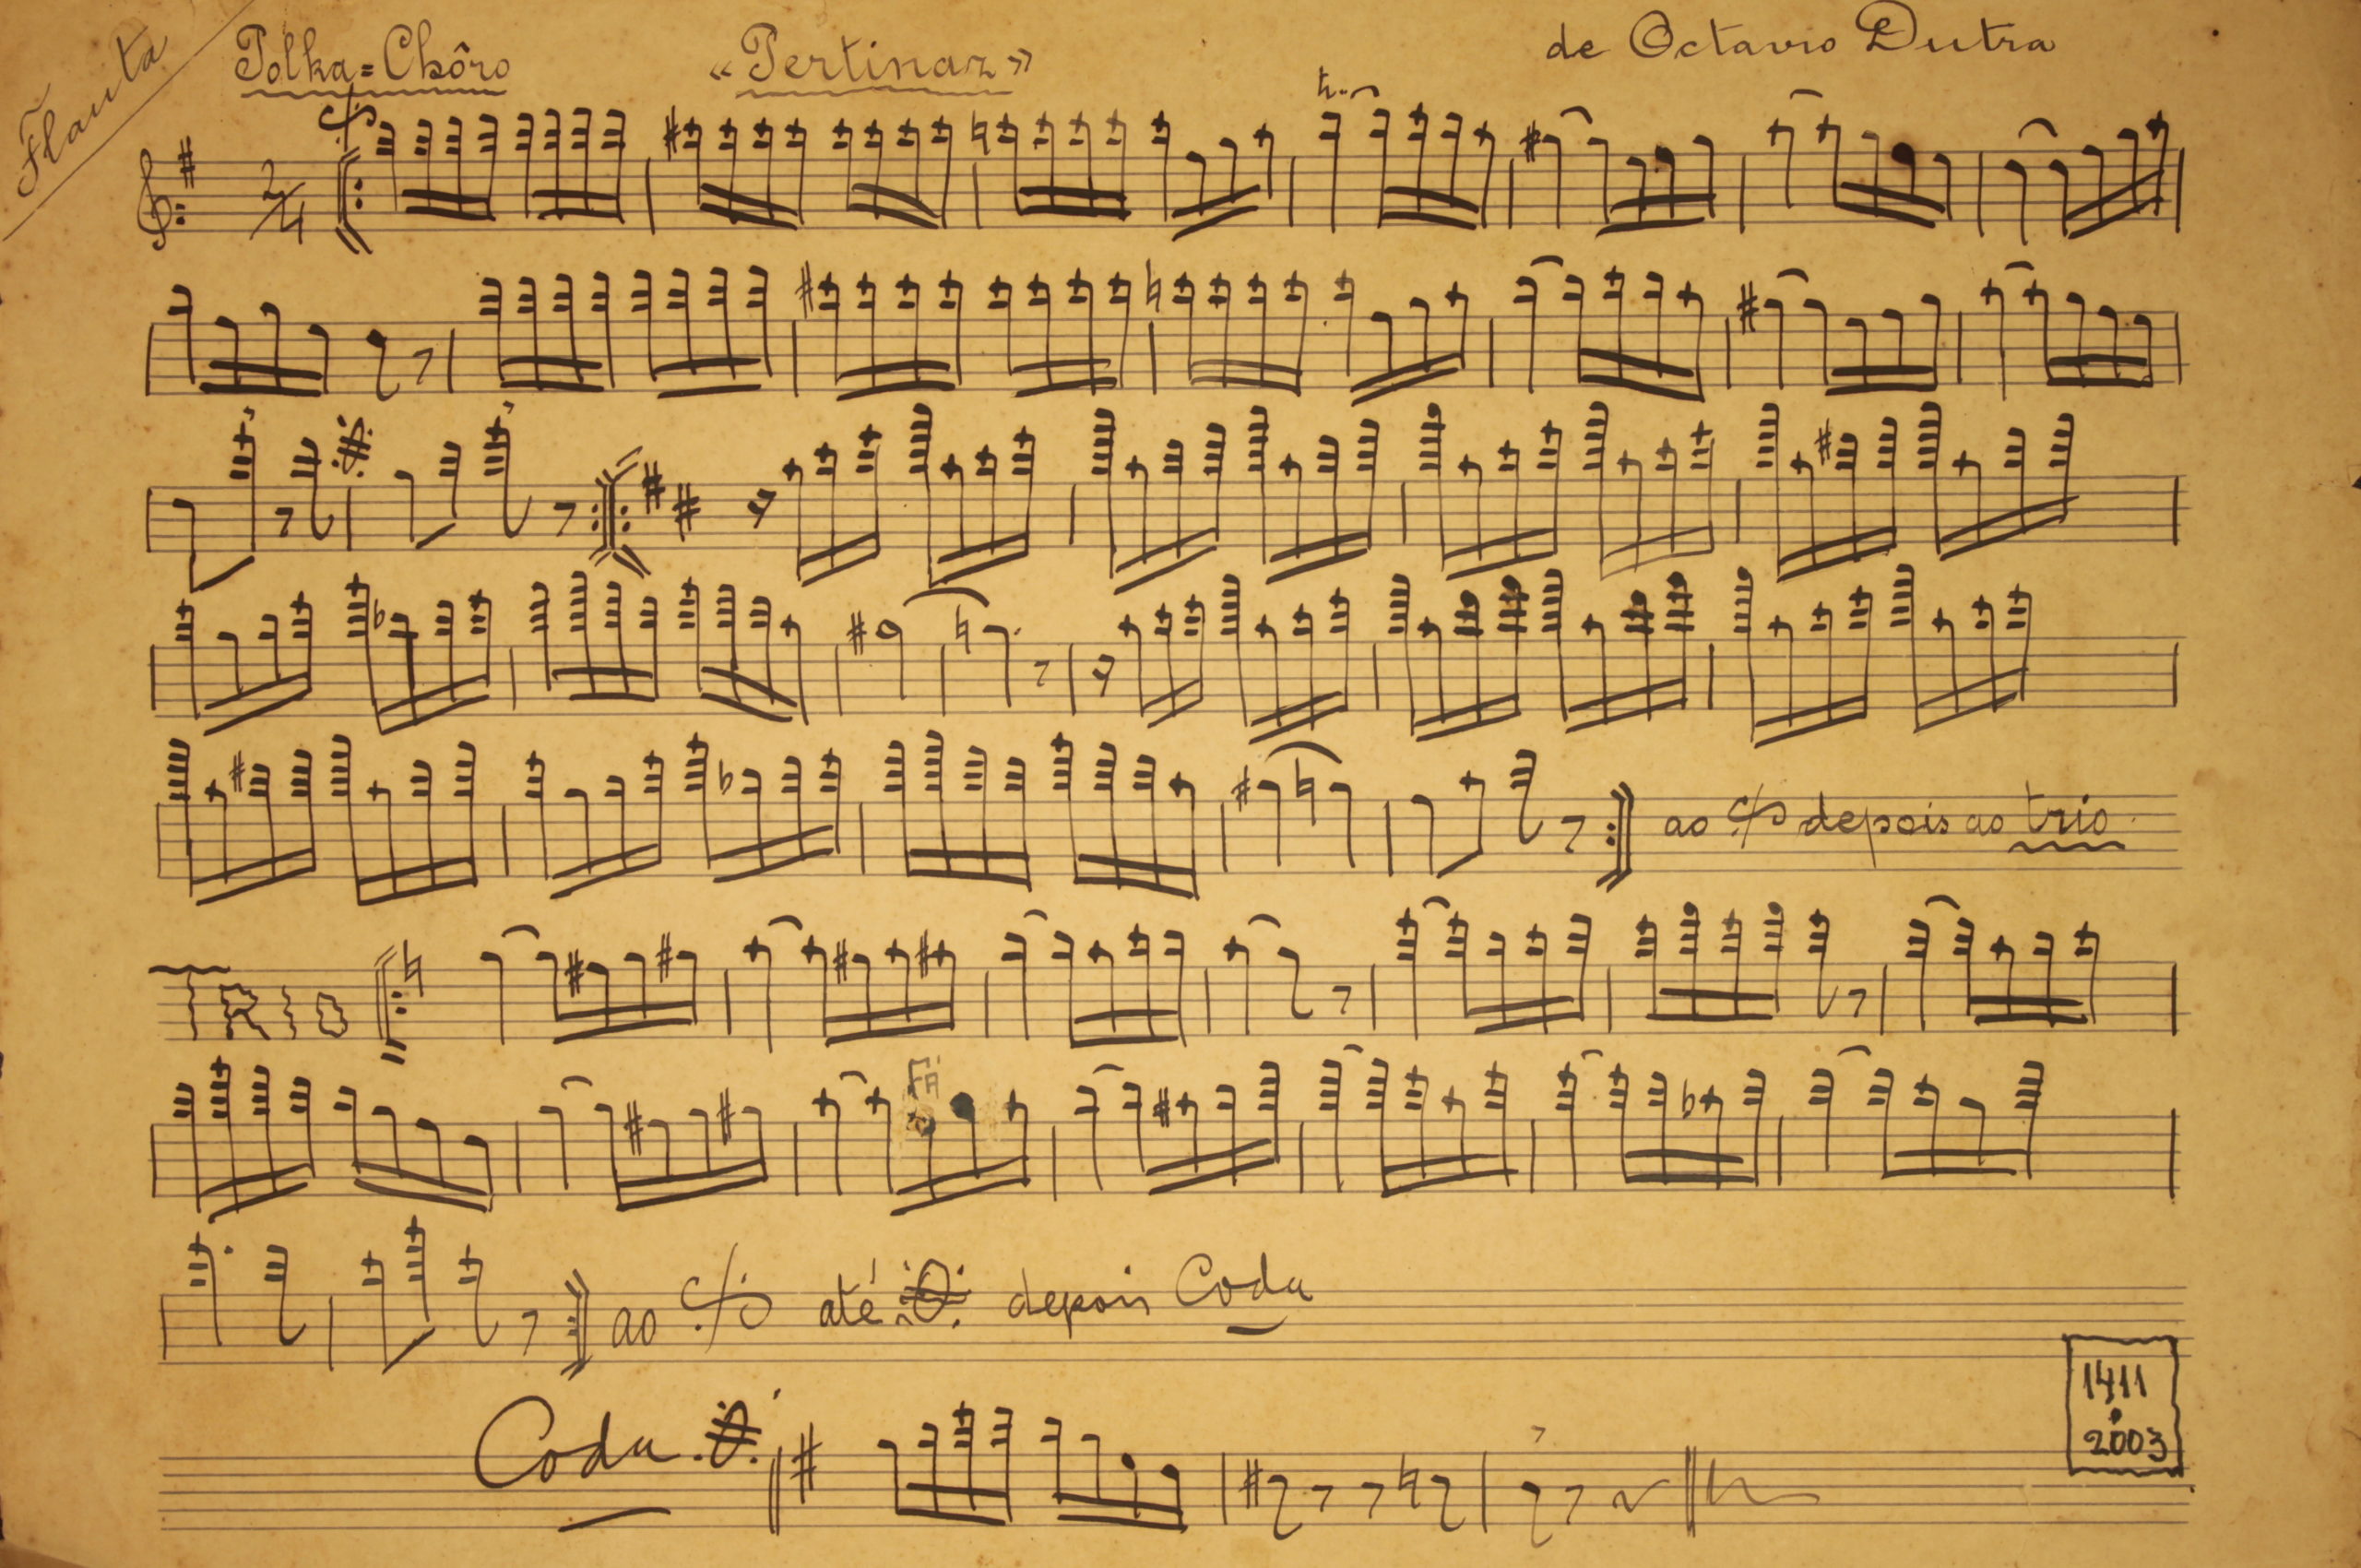 Flauta
Polka=Chôro «Pertinaz» de Octavio Dutra
tr
2/4
ao depois ao trio
TRIO
Fá
ao até depois Coda
Coda
1411
2003